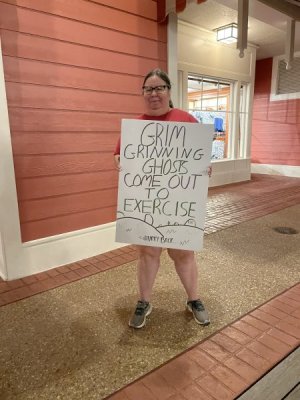 GRIM
GRINNING
GHOSTS
COME OUT
TO
EXERCISE